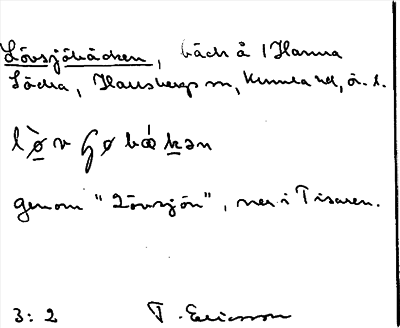 Lövsjöbäcken, bäck å 1 Hanna
Södra, Hausbergs sn, Kumla hd, ö. l.
lø̀vʃøbǽkən
genom "Lövsjön", ner i Tisaren.
3: 2 T. Ericsson